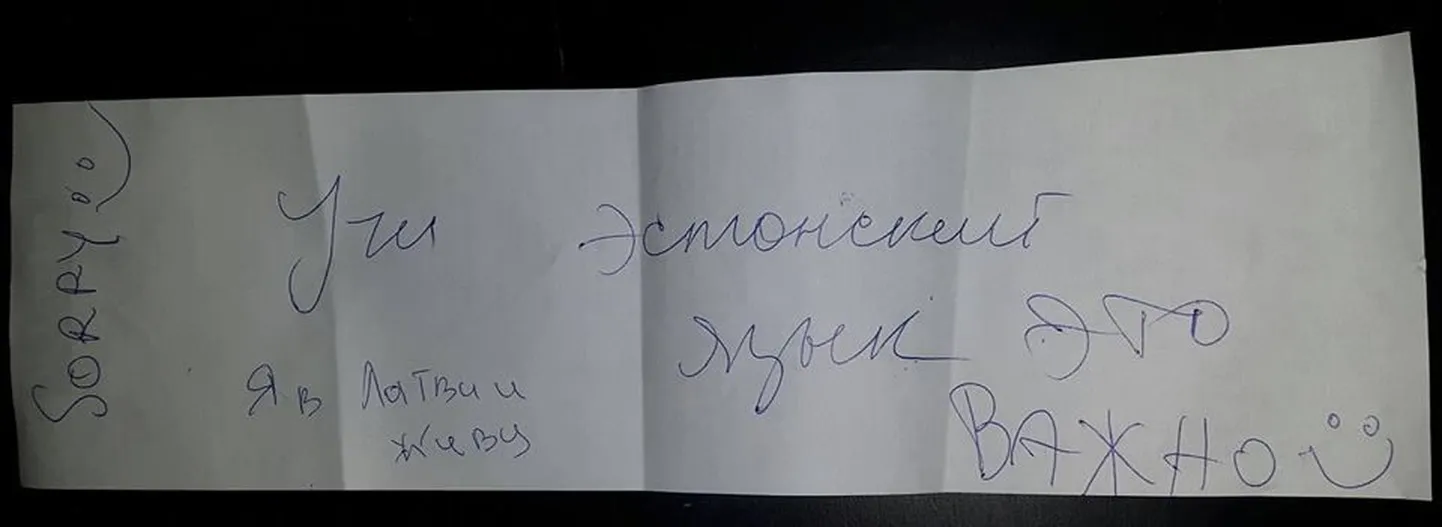 Учи эстонский
язык это
ВАЖНО
Я в Латвии
живу
SORRY